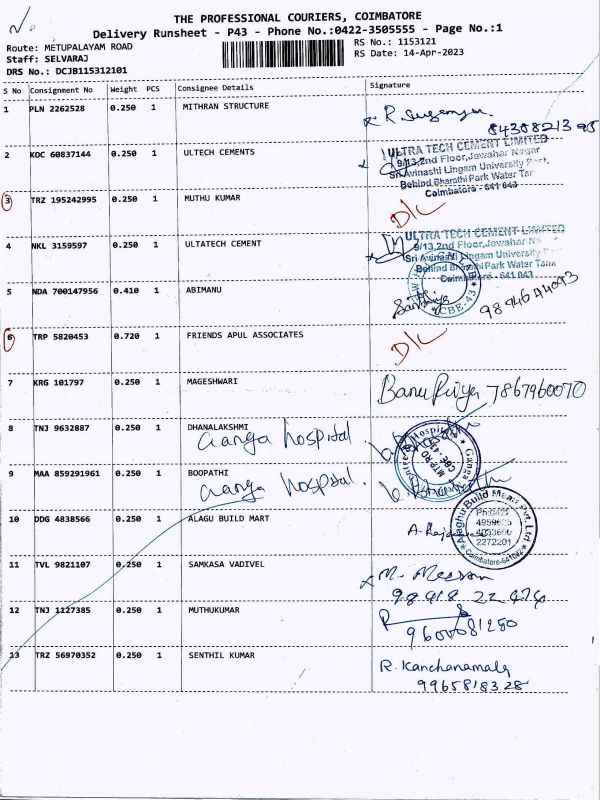 THE PROFESSIONAL COURIERS, COIMBATORE
Delivery Runsheet - P43 - Phone No.:0422-3505555 - Page No.:1
Route: METUPALAYAM ROAD
RS No.: 1153121
Staff: SELVARAJ
RS Date: 14-Apr-2023
DRS No.: DCJB115312101
S No Consignment No Weight PCS Consignee Details Signature
1 PLN 2262528 0.250 1 MITHRAN STRUCTURE
2 KOC 60837144 0.250 1 ULTECH CEMENTS
ULTRA TECH CEMENT LIMITED
9/13,2nd Floor,Jawahar Nagar
Sri Avinashi Lingam University
Behind Bharathi Park Water Tan
Coimbatore - 641 043
3 TRZ 195242995 0.250 1 MUTHU KUMAR D/L
4 NKL 3159597 0.250 1 ULTATECH CEMENT
ULTRA TECH CEMENT LIMITED
9/13,2nd Floor,Jawahar
Sri Avinashi Lingam University
Behind Bharathi Park Water Tank
Coimbatore - 641 043
5 NDA 700147956 0.410 1 ABIMANU
CBE-43
6 TRP 5820453 0.720 1 FRIENDS APUL ASSOCIATES D/L
7 KRG 101797 0.250 1 MAGESHWARI Banu Priya 7867960070
8 TNJ 9632887 0.250 1 DHANALAKSHMI
Ganga hospital
9 MAA 859291961 0.250 1 BOOPATHI
Ganga hospital.
MTP.RD
CBE-43
10 DDG 4838566 0.250 1 ALAGU BUILD MART
Alaghu Build Mart Pvt. Ltd
2272201
Coimbatore-641
11 TVL 9821107 0.250 1 SAMKASA VADIVEL
98918 22474
12 TNJ 1127385 0.250 1 MUTHUKUMAR
9600081250
13 TRZ 56970352 0.250 1 SENTHIL KUMAR R. Kanchanamala
9965818328